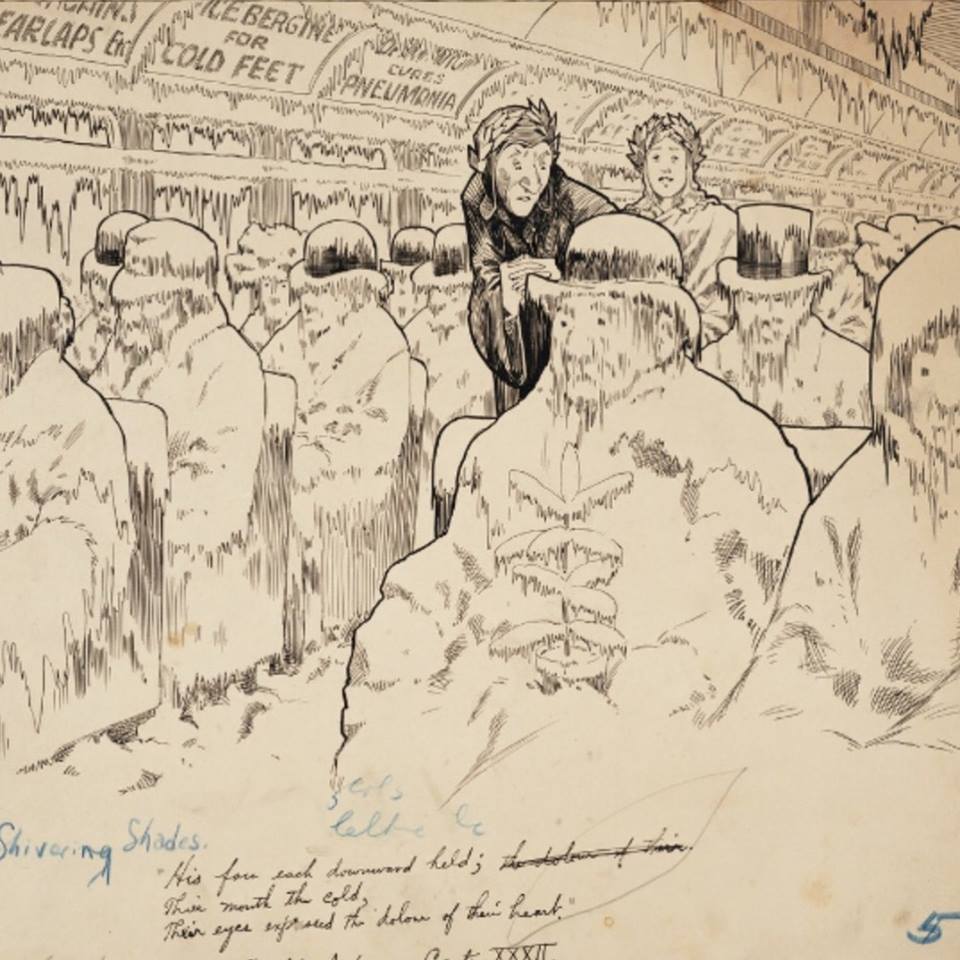 EARLAPS Etc
ICEBERGINE
FOR
COLD FEET
CURES
PNEUMONIA
Shivering Shades.
His face each downward held; the dolour of their
Their mouth the cold,
Their eyes expressed the dolour of their heart."
XXXII